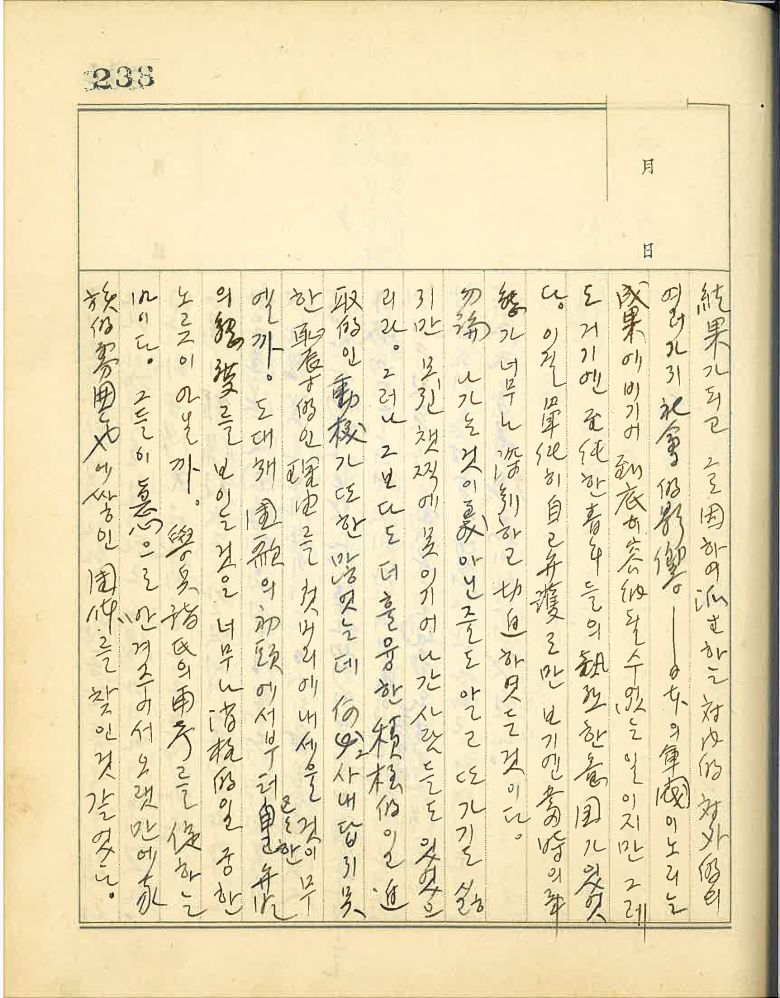 238
月
日
結果가되고 그로因하여 派生하는 対内的 対外的의
여러가지 社會的影響 — 日本의軍國이노리는
成果에비기어 到底히容納될수없는일이지만 그래
도거기엔 至純한青年들의 熱烈한意圖가있었
다. 이걸 單純히自己弁護로만 보기엔 當時의
가너무나深刻하고 切迫하였든것이다.
勿論 나가는것이義아닌줄도알고 또가기를싫
지만 모진챗찍에못이기어나간사람들도 있었으
리라. 그러나 그보다도더훌융한積極的일 進
取的인動機가또한많었는데 何必사내답지못
한恥辱的인理由를 첫머리에내세울것이무
엘까. 도대체 国歌의初頭에서부터 弁
의態度를보일것은 너무나消極的일 궁한
노릇이아닐까. 學兵諸氏의再考를促하는
바이다. 그들이 으로안겨주어서오랫만에家
族的雰囲気에쌓인 団体를찾인것같었다.